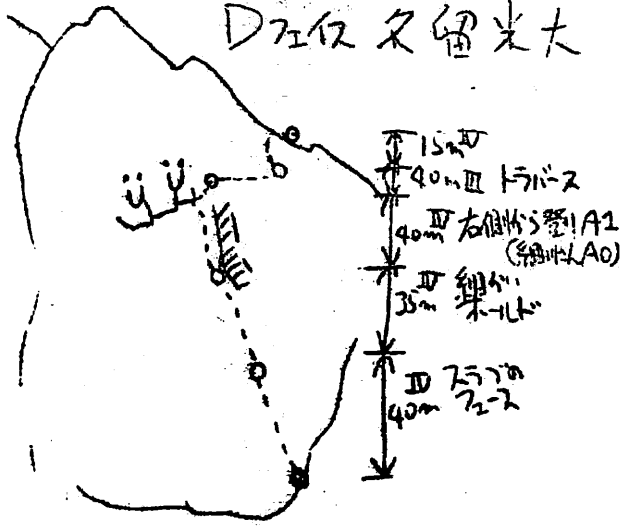 Dフェイス 久留米大
15m Ⅳ
40m Ⅲ トラバース
40m Ⅳ 右側から登りA1
A0)
35m Ⅳ 細かい
ホールド
40m Ⅳ スラブの
フェース